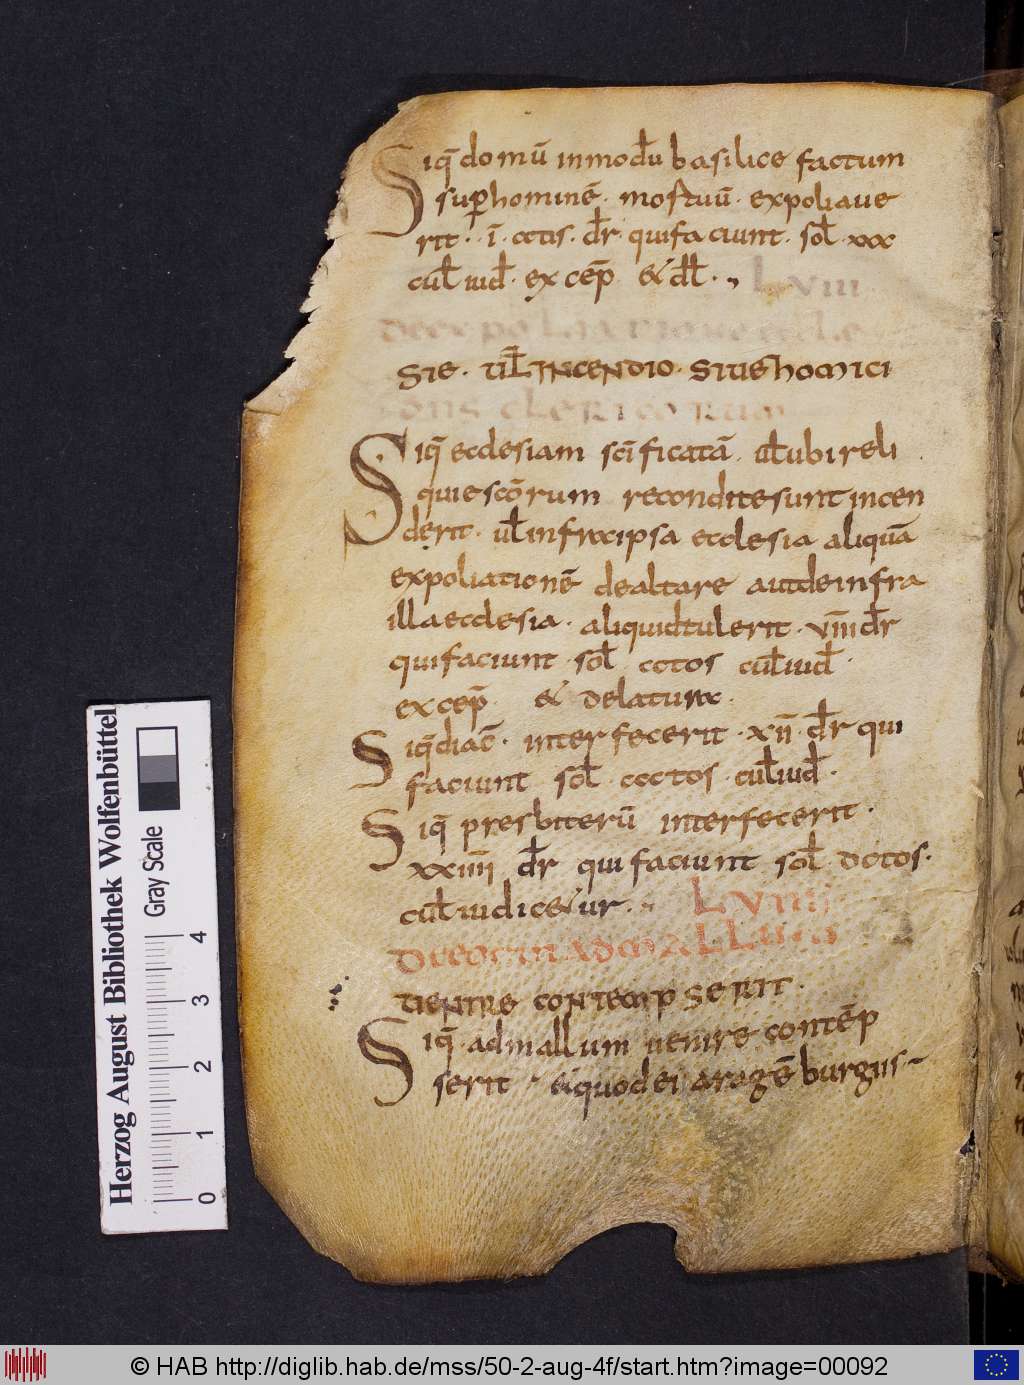 Siq̄ domū inmodū basilice factum
sup̱ hominē · mortuū · expoliaue
rit · · ī · ccus · dr̄ · quifaciunt · sol̄ · xxx
cul̄ iud̄ · excep̄ · & dl̄ · LVIII
De expoliatione eccle
sie · ul̄ incendio · siue homici
diis clericorum
Siq̄ ecclesiam scīficatā · ul̄ ubi reli
quie scōrum recondite sunt incen
derit · ul̄ infra ipsa ecclesia aliquā
expoliationē de altare aut de infra
illa ecclesia · aliquid tulerit · VIII dr̄
qui faciunt · sol̄ cctos cul̄ iud̄ ·
excep̄ & delatura ·
Siq̄ diac̄ · interfecerit · XII · dr̄ qui
faciunt sol̄ ccctos · cul̄ iud̄ ·
Siq̄ presbiterū interfecerit ·
XXIIII dr̄ qui faciunt sol̄ dctos ·
cul̄ iudic&ur · LVIIII
De eo qui ad mallum
uenire contempserit ·
Siq̄ · ad mallum uenire contēp
serit · & quod ei a ragēburgiis
Herzog August Bibliothek Wolfenbüttel
Gray Scale
0 1 2 3 4
© HAB http://diglib.hab.de/mss/50-2-aug-4f/start.htm?image=00092